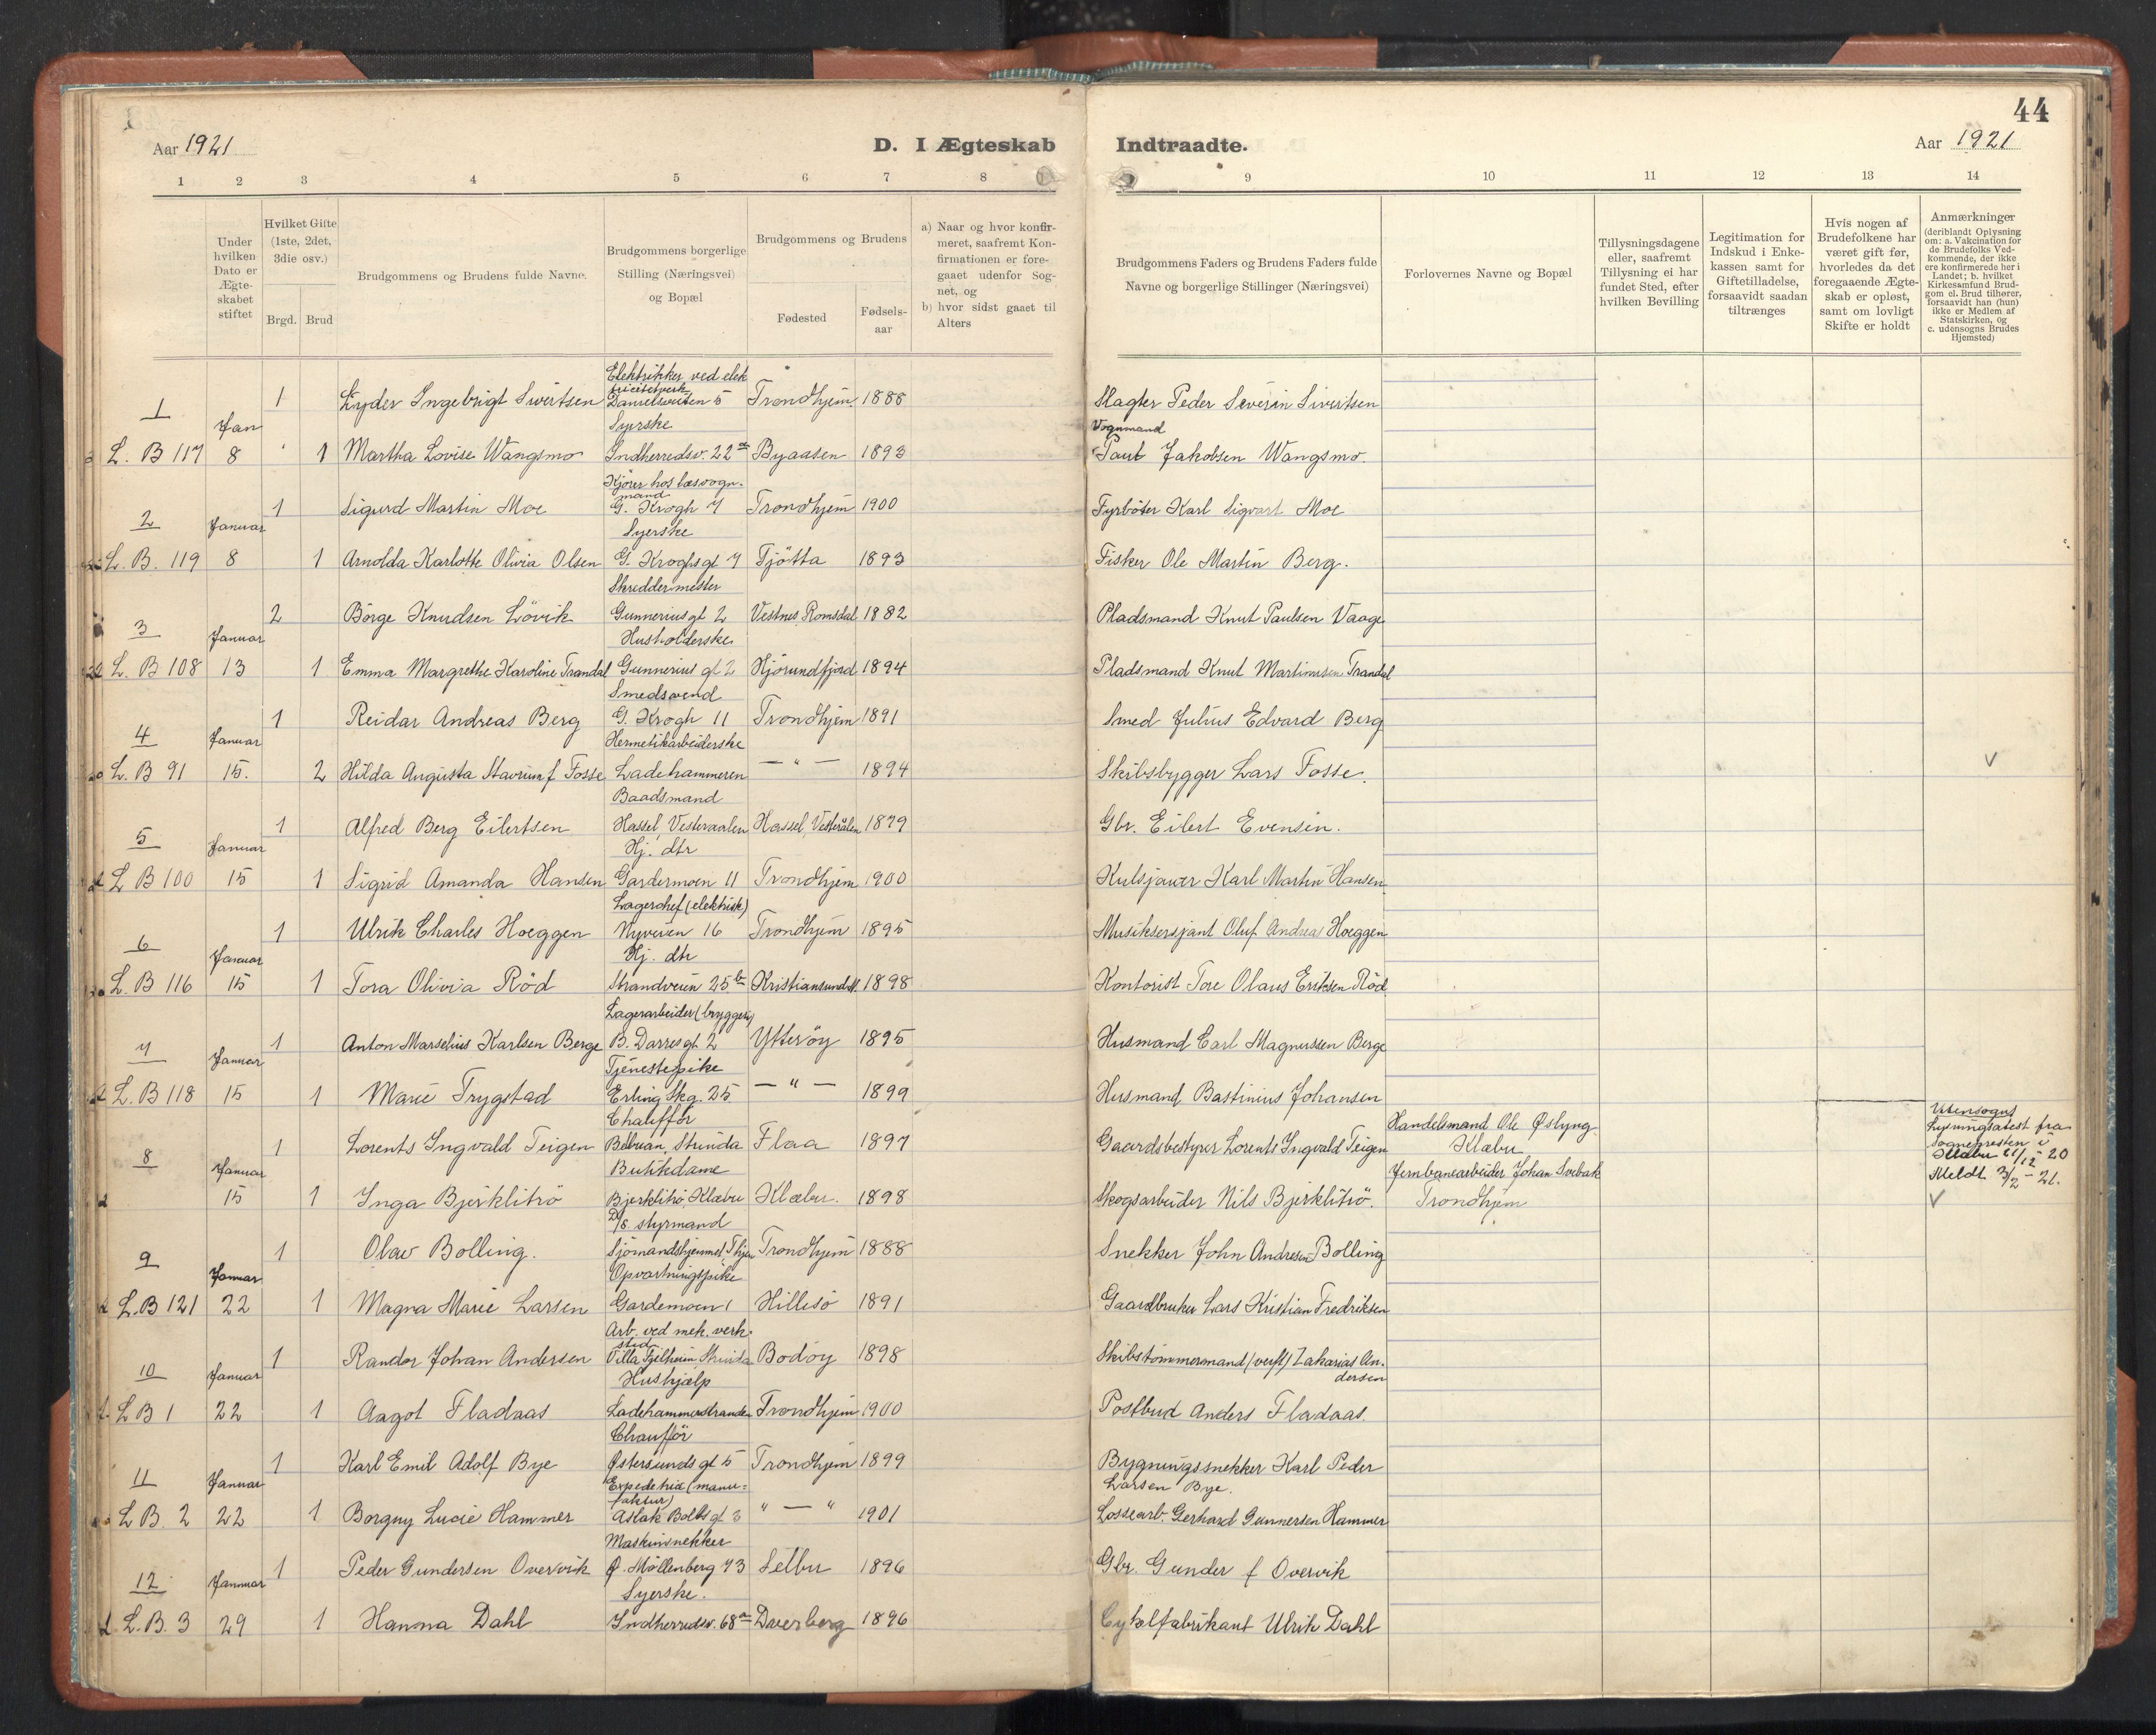 44
Aar 1921
D. I Ægteskab Indtraadte.
Aar 1921
1 2 3 4 5 6 7 8 9 10 11 12 13 14
Under hvilken Dato er Ægteskabet stiftet
Hvilket Gifte (1ste, 2det, 3die osv.)
Brgd. Brud
Brudgommens og Brudens fulde Navne.
Brudgommens borgerlige Stilling (Næringsvei) og Bopæl
Brudgommens og Brudens
Fødested
Fødsels-aar
a) Naar og hvor konfir-
meret, saafremt Kon-
firmationen er fore-
gaaet udenfor Sog-
net, og
b) hvor sidst gaaet til
Alters
Brudgommens Faders og Brudens Faders fulde
Navne og borgerlige Stillinger (Næringsvei)
Forlovernes Navne og Bopæl
Tillysningsdagene
eller, saafremt
Tillysning ei har
fundet Sted, efter
hvilken Bevilling
Legitimation for
Indskud i Enke-
kassen samt for
Giftetilladelse,
forsaavidt saadan
tiltrænges
Hvis nogen af
Brudefolkene har
været gift før,
hvorledes da det
foregaaende Ægte-
skab er opløst,
samt om lovligt
Skifte er holdt
Anmærkninger
(deriblandt Oplysning
om: a. Vakcination for
de Brudefolks Ved-
kommende, der ikke
ere konfirmerede her i
Landet; b. hvilket
Kirkesamfund Brud-
gom el. Brud tilhører,
forsaavidt han (hun)
ikke er Medlem af
Statskirken, og
c. udensogns Brudes
Hjemsted)
Elektrikker ved elek
tricitetverk
1 1 Lyder Ingebrigt Sivertsen Danielsveiten 5 Trondhjem. 1888 Slagter Peder Severin Sivertsen
Jan Syerske Vognmand
L. B 117 8 1 Martha Lovise Wangsmo Indherredsv. 22a Byaasen 1893 Paul Jakobsen Wangsmo.
Kjører hos læsvogn-
mand
2 Januar 1 Sigurd Martin Moe G. Krogh 7 Trondhjem 1900 Fyrbøter Karl Sigvart Moe
Syerske
L. B. 119 8 1 Arnolda Karlotte Olivia Olsen G. Kroghs gt 7 Tjøtta 1893 Fisker Ole Martin Berg.
Skreddermester
3 Januar 2 Börge Knudsen Lövik Gunnerius gt 2 Vestnes, Romsdal 1882 Pladsmand Knut Paulsen Vaage
Husholderske
L. B 108 13 1 Emma Margrethe Karoline Trandal Gunnerius gt 2 Hjørundfjord 1894 Pladsmand Knut Martinusen Trandal
Smedsvend
4 Januar 1 Reidar Andreas Berg G. Krogh 11 Trondhjem 1891 Smed Julius Edvard Berg
Hermetikarbeiderske
L. B 91 15. 2 Hilda Augusta Stavrum f Fosse Ladehammeren — " — 1894 Skibsbygger Lars Fosse.
Baadsmand
5 Januar 1 Alfred Berg Eilertsen Hassel, Vesteraalen Hassel, Vesterålen 1879 Gbr. Eilert Evensen.
Hj. dtr
L B 100 15 1 Sigrid Amanda Hansen Gardermoen 11 Trondhjem 1900 Kulsjauer Karl Martin Hansen
Lagerchef (elektrisk)
6 Januar 1 Ulrik Charles Hoeggen Nyveien 16 Trondhjem 1895 Musiksersjant Oluf Andreas Hoeggen
Hj. dtr
L. B 116 15 1 Tora Olivia Röd Strandveien 25b Kristiansund N. 1898 Kontorist Tore Olaus Eriksen Röd
Lagerarbeider (bryggeri)
7 Januar 1 Anton Marselius Karlsen Berge B. Darres gt. 2 Ytterøy 1895 Husmand Carl Magnussen Berge
Tjenestepike
L. B 118 15 1 Marie Trygstad Erling Skg. 25 — " — 1899 Husmand Bastinius Johansen
Chauffør
8 Januar 1 Lorents Ingvald Teigen Belvuan, Strinda Flaa 1897 Gaardsbestyrer Lorents Ingvald Teigen Handelsmand Ole Østyng
Klæbu
Butikdame
15 1 Inga Bjerklitrö Bjerklitrö, Klæbu Klæbu. 1898 Skogsarbeider Nils Bjerklitrö. Jernbanearbeider Johan Svebak
Trondhjem
Utensogns
Lysningsatest fra
Sognepresten i
Klæbu 21/12 - 20
Meldt 3/2 - 21.
D/S styrmand
9 Januar 1 Olav Bolling. Sjömandshjemmet, Thjem Trondhjem 1888 Snekker John Andresen Bolling
Opvartningspike
L. B 121 22 1 Magna Marie Larsen Gardemoen 1 Hillesö 1891 Gaardbruker Lars Kristian Fredriksen
Arb. ved mek. verk-
sted
10 Januar 1 Randor Johan Andersen Villa Fjelheim, Strinda Bodøy 1898 Skibstømmermand (verft) Zakarias An-
dersen
Hushjælp
L B 1 22 1 Aagot Fladaas Ladehammerstranden Trondhjem 1900 Postbud Anders Fladaas
Chauffør
11 Januar 1 Karl Emil Adolf Bye Østersunds gt 5 Trondhjem 1899 Bygningssnekker Karl Peder
Larsen Bye.
Expeditrice (manu-
faktur)
L B. 2 22 1 Borgny Lucie Hammer Aslak Bolts gt 3 " — " 1901 Lossearb. Gerhard Gunnersen Hammer
Maskinsnekker
12 Januar 1 Peder Gundersen Overvik Ø. Möllenberg 73 Selbu 1896 Gbr. Gunder f Overvik
Syerske.
L. B. 3 29 1 Hanna Dahl Indherredsv. 68a Dverberg 1896 Cykelfabrikant Ulrik Dahl